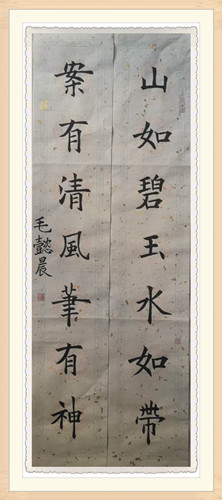 山如碧玉水如帶
案有清風筆有神
毛懿晨